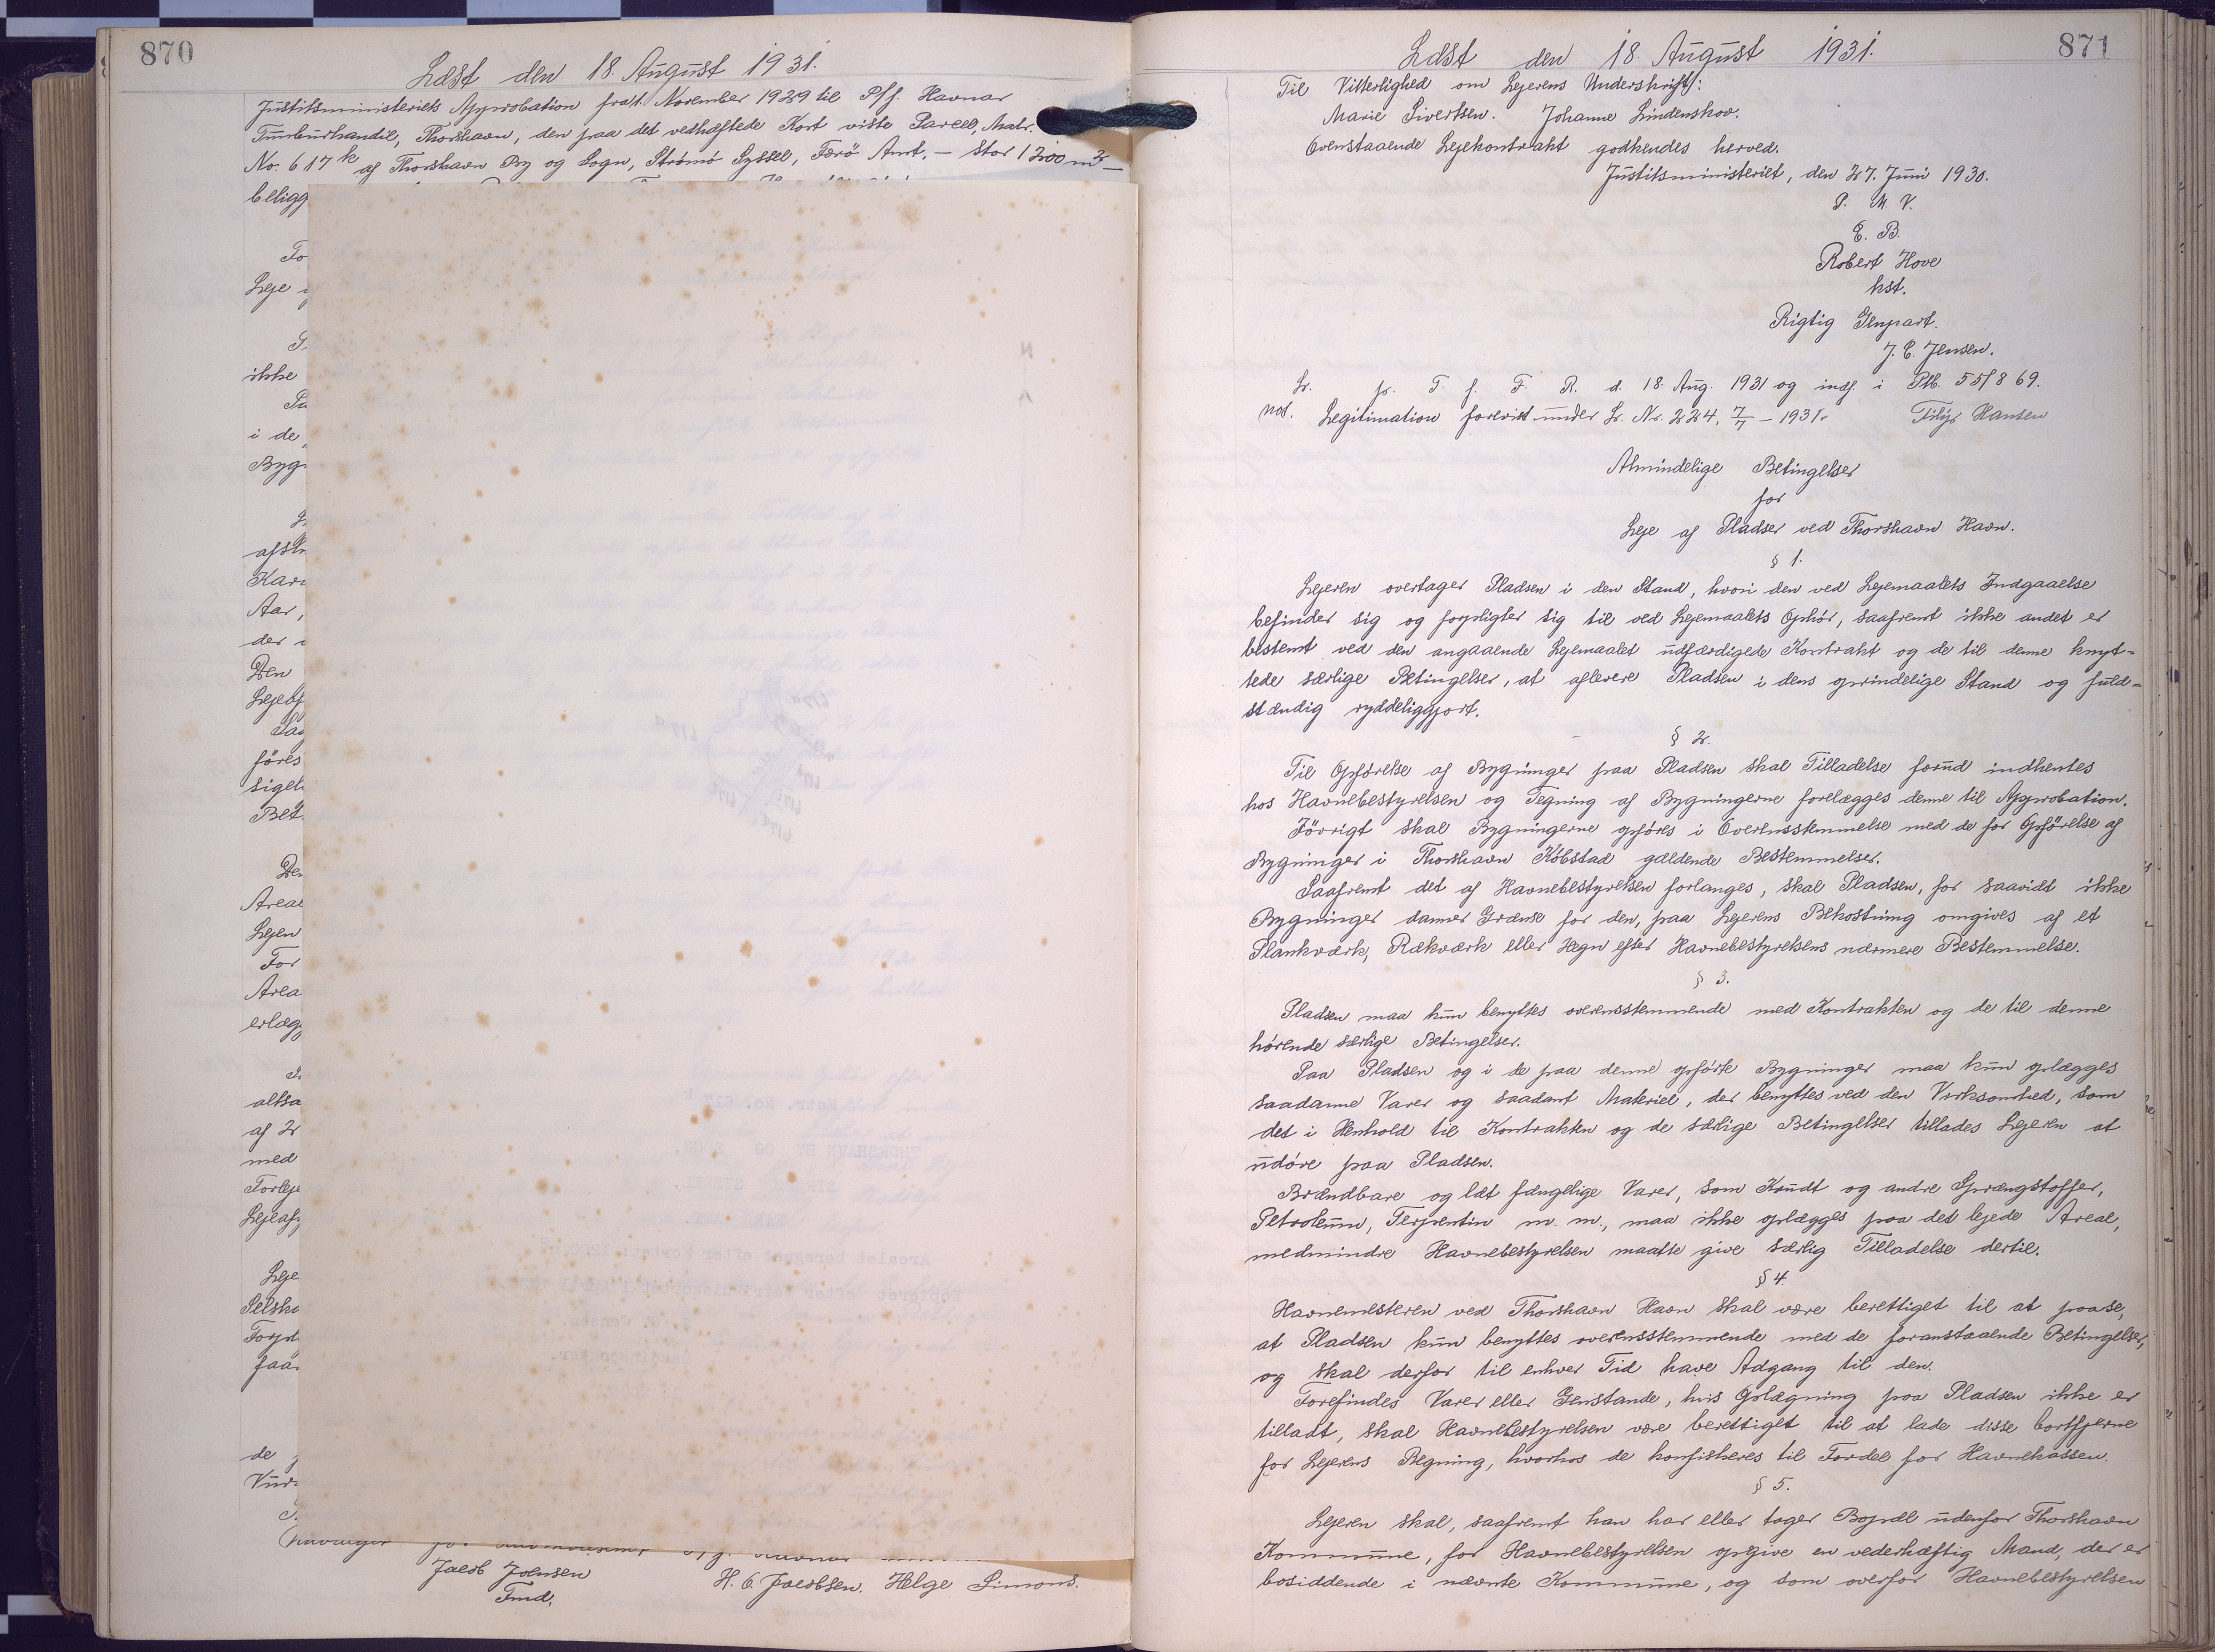 870
Læst den 18. August 1931.
Justitsministeriets Approbation fra 1. November 1929 til P/f. Havnar
Timburhandil, Thorshavn, den paa det vedhæftede Kort viste Parcel, Matr.
No. 617 k af Thorshavn By og Sogn, Strømø Syssel, Færö Amt, – stor 1200 m² –
beligg
To
Leje
ikke
i de
Bygn
afstr
Aar,
der
Den
Lejeaf
föres
siget
Bet
Den
Areal
Lejen
For
Area
erlæg
altsa
af 2
med
Forleje
Lejeaf
Leje
Selska
Forpl
faa
de
Jacob Joensen H. C. Jacobsen. Helge Simons.
Fmd.
871
Læst den 18. August 1931.
Til Vitterlighed om Lejerens Underskrift:
Marie Sivertsen. Johanne Lindenskov.
Ovenstaaende Lejekontrakt godkendes herved.
Justitsministeriet, den 27. Juni 1930.
P. M. V.
E. B.
Robert Hove
kst.
Rigtig Genpart.
J. C. Jensen.
Lr. pr. T. f. F. R. d. 18. Aug. 1931 og indf. i Ptb. 55/869.
not. Legitimation forevist under Lr. Nr. 224, 7/7 – 1931. Hansen
Almindelige Betingelser
for
Leje af Pladser ved Thorshavn Havn.
§ 1.
Lejeren overtager Pladsen i den Stand, hvori den ved Lejemaalets Indgaaelse
befinder sig og forpligter sig til ved Lejemaalets Ophör, saafremt ikke andet er
bestemt ved den angaaende Lejemaalet udfærdigede Kontrakt og de til denne knyt=
tede særlige Betingelser, at aflevere Pladsen i dens oprindelige Stand og fuld=
stændig ryddeliggjort.
§ 2.
Til Opførelse af Bygninger paa Pladsen skal Tilladelse forud indhentes
hos Havnebestyrelsen og Tegning af Bygningerne forelægges denne til Approbation.
Iövrigt skal Bygningerne opföres i Overensstemmelse med de for Opførelse af
Bygninger i Thorshavn Köbstad gældende Bestemmelser.
Saafremt det af Havnebestyrelsen forlanges, skal Pladsen, for saavidt ikke
Bygninger danner Grænse for den, paa Lejerens Bekostning omgives af et
Plankværk, Rækværk eller Hegn efter Havnebestyrelsens nærmere Bestemmelse.
§ 3.
Pladsen maa kun benyttes overensstemmende med Kontrakten og de til denne
hörende særlige Betingelser.
Paa Pladsen og i de paa denne opförte Bygninger maa kun oplægges
saadanne Varer og saadant Materiel, der benyttes ved den Virksomhed, som
det i Henhold til Kontrakten og de særlige Betingelser tillades Lejeren at
udöve paa Pladsen.
Brændbare og let fængelige Varer, som Krudt og andre Sprængstoffer,
Petroleum, Terpentin m. m., maa ikke oplægges paa det lejede Areal,
medmindre Havnebestyrelsen maatte give særlig Tilladelse dertil.
§ 4.
Havnemesteren ved Thorshavn Havn skal være berettiget til at paase,
at Pladsen kun benyttes overensstemmende med de foranstaaende Betingelser,
og skal derfor til enhver Tid have Adgang til den.
Forefindes Varer eller Genstande, hvis Oplægning paa Pladsen ikke er
tilladt, skal Havnebestyrelsen være berettiget til at lade disse bortfjerne
for Lejerens Regning, hvorhos de konfiskeres til Fordel for Havnekassen.
§ 5.
Lejeren skal, saafremt han har eller tager Bopæl udenfor Thorshavn
Kommune, for Havnebestyrelsen opgive en vederhæftig Mand, der er
bosiddende i nævnte Kommune, og som overfor Havnebestyrelsen